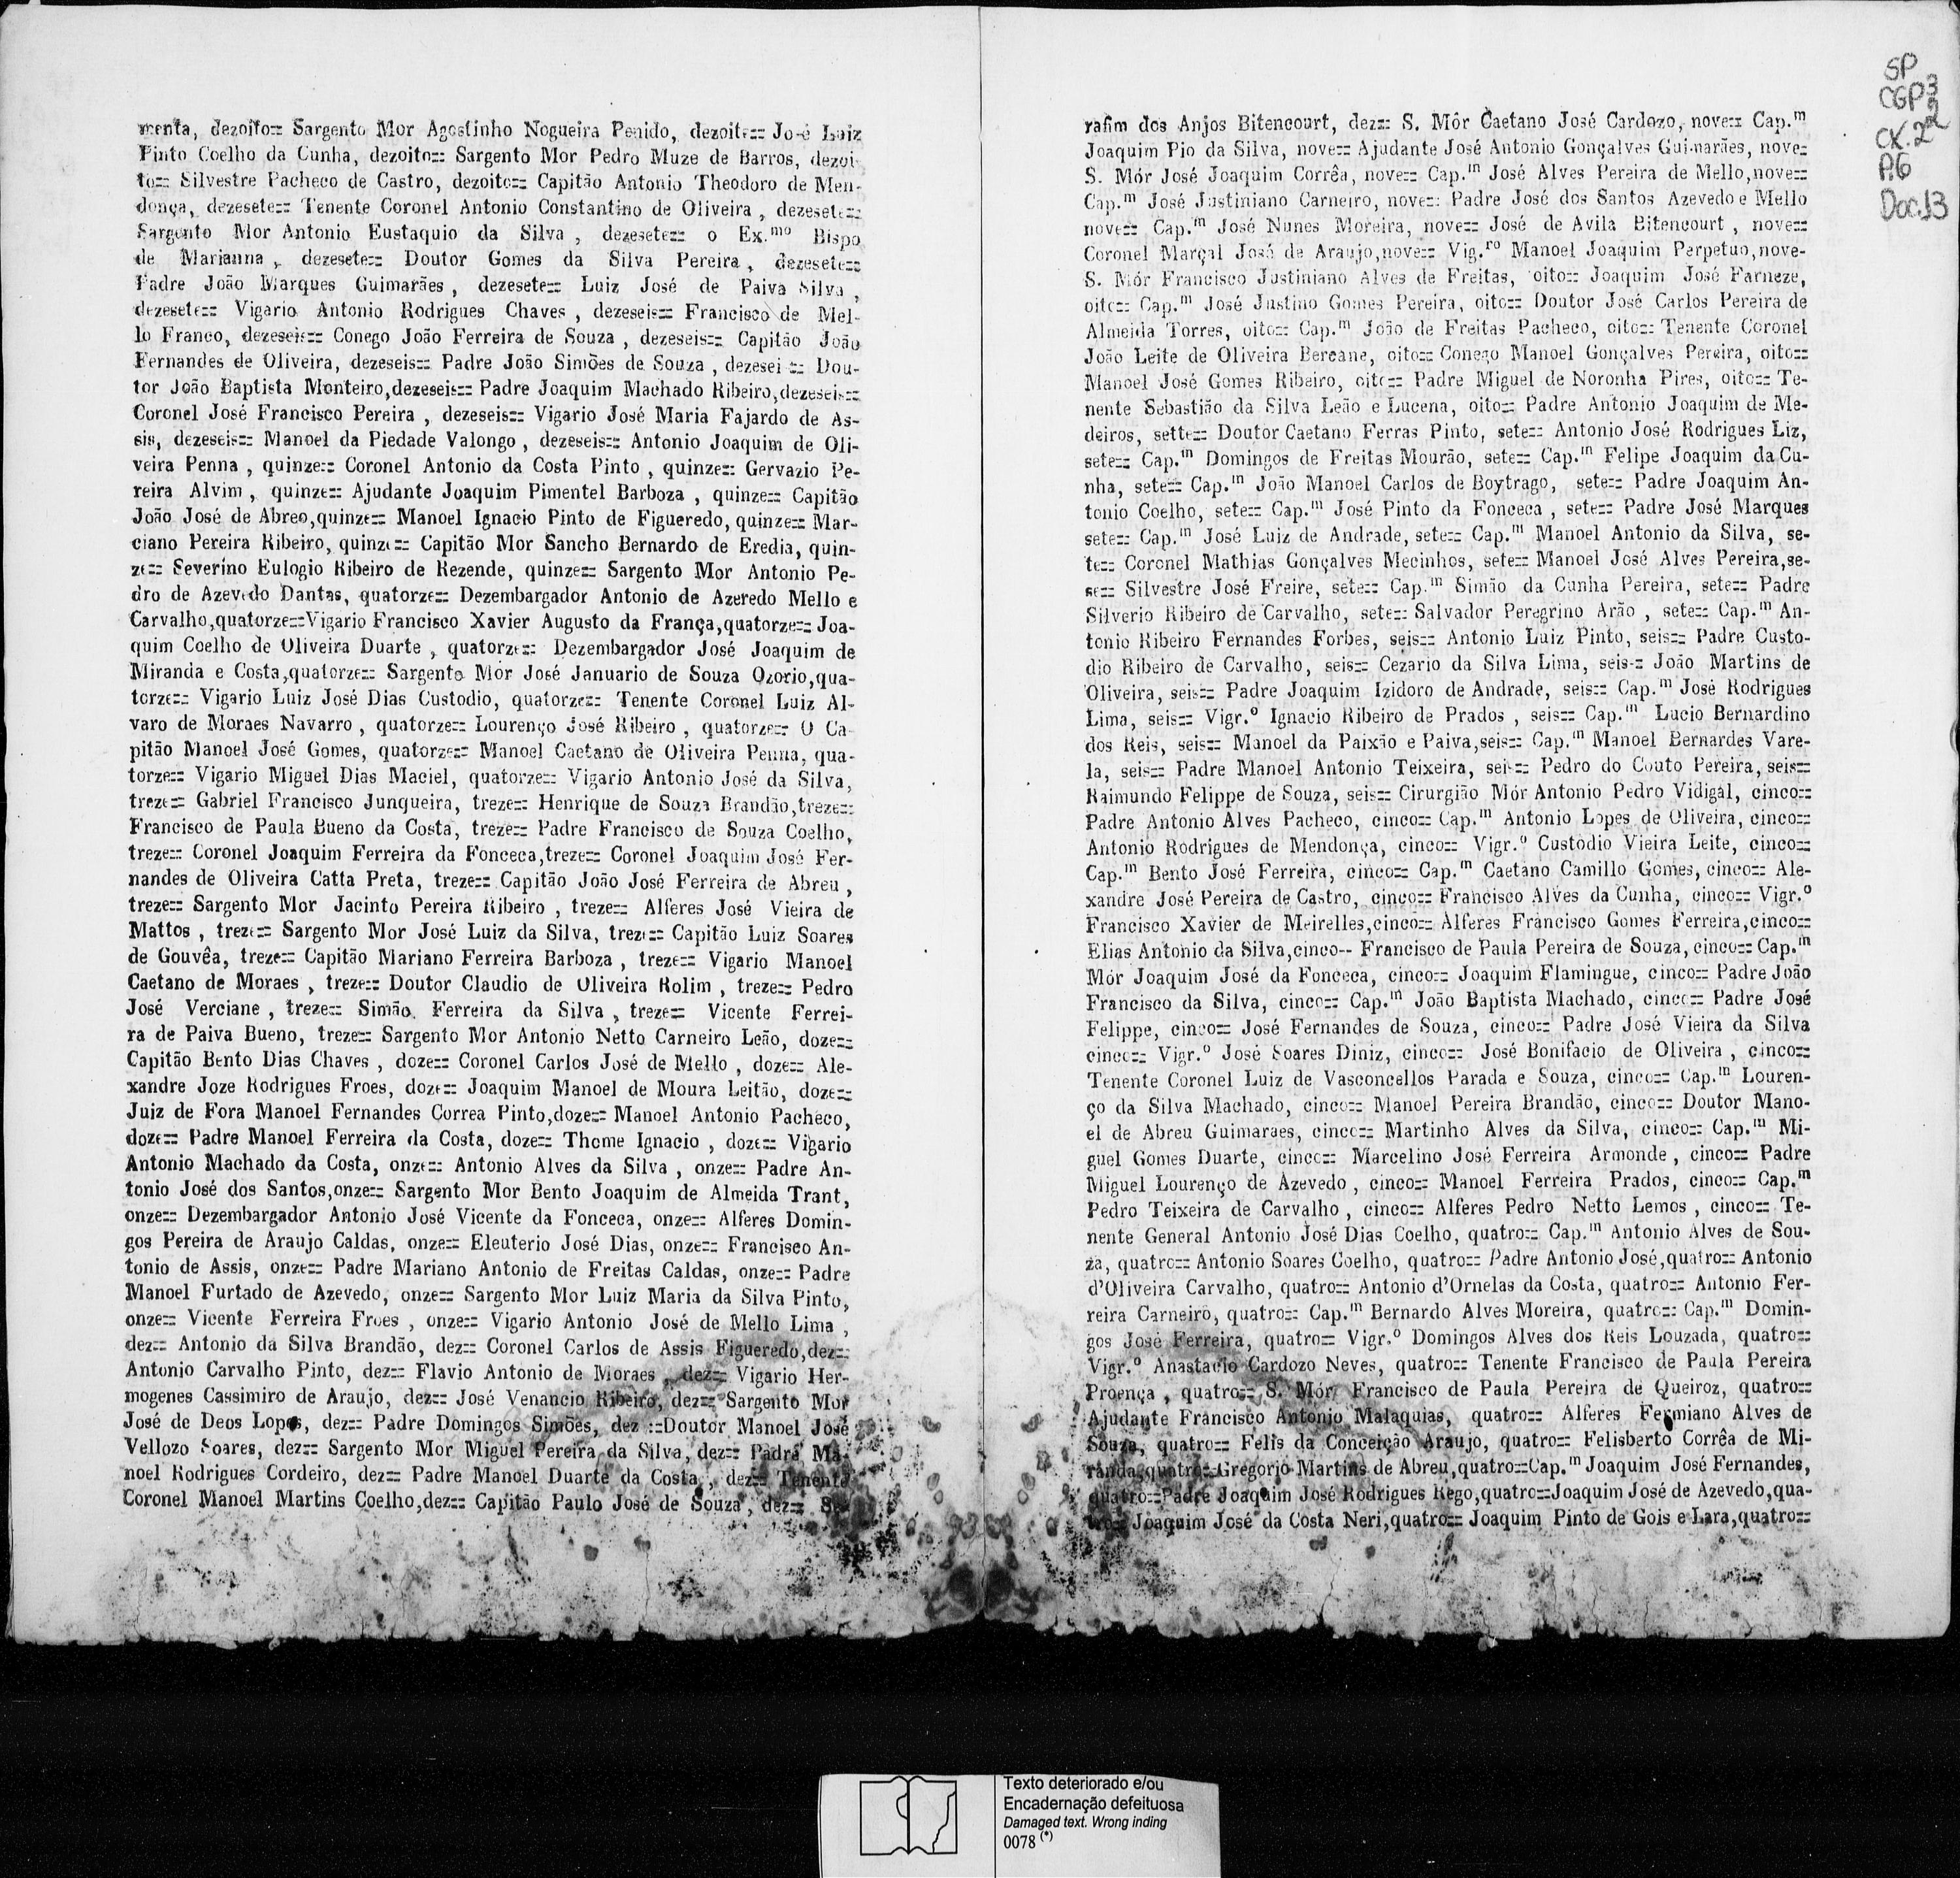 menta, dezoito== Sargento Mor Agostinho Nogueira Penido, dezoito== José Luiz
Pinto Coelho da Cunha, dezoito== Sargento Mor Pedro Muze de Barros, dezoi-
to== Silvestre Pacheco de Castro, dezoito== Capitão Antonio Theodoro de Men-
donça, dezesete== Tenente Coronel Antonio Constantino de Oliveira, dezesete==
Sargento Mor Antonio Eustaquio da Silva, dezesete== o Ex.mo Bispo
de Marianna, dezesete== Doutor Gomes da Silva Pereira, dezesete==
Padre João Marques Guimarães, dezesete== Luiz José de Paiva Silva,
dezesete== Vigario Antonio Rodrigues Chaves, dezeseis== Francisco de Mel-
lo Franco, dezeseis== Conego João Ferreira de Souza, dezeseis== Capitão João
Fernandes de Oliveira, dezeseis== Padre João Simões de Souza, dezeseis== Dou-
tor João Baptista Monteiro, dezeseis== Padre Joaquim Machado Ribeiro, dezeseis==
Coronel José Francisco Pereira, dezeseis== Vigario José Maria Fajardo de As-
sis, dezeseis== Manoel da Piedade Valongo, dezeseis== Antonio Joaquim de Oli-
veira Penna, quinze== Coronel Antonio da Costa Pinto, quinze== Gervazio Pe-
reira Alvim, quinze== Ajudante Joaquim Pimentel Barboza, quinze== Capitão
João José de Abreo, quinze== Manoel Ignacio Pinto de Figueredo, quinze== Mar-
ciano Pereira Ribeiro, quinze== Capitão Mor Sancho Bernardo de Eredia, quin-
ze== Severino Eulogio Ribeiro de Rezende, quinze== Sargento Mor Antonio Pe-
dro de Azevedo Dantas, quatorze== Dezembargador Antonio de Azeredo Mello e
Carvalho, quatorze== Vigario Francisco Xavier Augusto da França, quatorze== Joa-
quim Coelho de Oliveira Duarte, quatorze== Dezembargador José Joaquim de
Miranda e Costa, quatorze== Sargento Mór José Januario de Souza Ozorio, qua-
torze== Vigario Luiz José Dias Custodio, quatorze== Tenente Coronel Luiz Al-
varo de Moraes Navarro, quatorze== Lourenço José Ribeiro, quatorze== O Ca-
pitão Manoel José Gomes, quatorze== Manoel Caetano de Oliveira Penna, qua-
torze== Vigario Miguel Dias Maciel, quatorze== Vigario Antonio José da Silva,
treze== Gabriel Francisco Junqueira, treze== Henrique de Souza Brandão, treze==
Francisco de Paula Bueno da Costa, treze== Padre Francisco de Souza Coelho,
treze== Coronel Joaquim Ferreira da Fonceca, treze== Coronel Joaquim José Fer-
nandes de Oliveira Catta Preta, treze== Capitão João José Ferreira de Abreu,
treze== Sargento Mor Jacinto Pereira Ribeiro, treze== Alferes José Vieira de
Mattos, treze== Sargento Mor José Luiz da Silva, treze== Capitão Luiz Soares
de Gouvêa, treze== Capitão Mariano Ferreira Barboza, treze== Vigario Manoel
Caetano de Moraes, treze== Doutor Claudio de Oliveira Rolim, treze== Pedro
José Verciane, treze== Simão Ferreira da Silva, treze== Vicente Ferrei-
ra de Paiva Bueno, treze== Sargento Mor Antonio Netto Carneiro Leão, doze==
Capitão Bento Dias Chaves, doze== Coronel Carlos José de Mello, doze== Ale-
xandre Joze Rodrigues Froes, doze== Joaquim Manoel de Moura Leitão, doze==
Juiz de Fora Manoel Fernandes Correa Pinto, doze== Manoel Antonio Pacheco,
doze== Padre Manoel Ferreira da Costa, doze== Thome Ignacio, doze== Vigario
Antonio Machado da Costa, onze== Antonio Alves da Silva, onze== Padre An-
tonio José dos Santos, onze== Sargento Mor Bento Joaquim de Almeida Trant,
onze== Dezembargador Antonio José Vicente da Fonceca, onze== Alferes Domin-
gos Pereira de Araujo Caldas, onze== Eleuterio José Dias, onze== Francisco An-
tonio de Assis, onze== Padre Mariano Antonio de Freitas Caldas, onze== Padre
Manoel Furtado de Azevedo, onze== Sargento Mor Luiz Maria da Silva Pinto,
onze== Vicente Ferreira Froes, onze== Vigario Antonio José de Mello Lima,
dez== Antonio da Silva Brandão, dez== Coronel Carlos de Assis Figueredo, dez==
Antonio Carvalho Pinto, dez== Flavio Antonio de Moraes, dez== Vigario Her-
mogenes Cassimiro de Araujo, dez== José Venancio Ribeiro, dez== Sargento Mor
José de Deos Lopes, dez== Padre Domingos Simões, dez== Doutor Manoel José
Vellozo Soares, dez== Sargento Mor Miguel Pereira da Silva, dez== Padre Ma-
noel Rodrigues Cordeiro, dez== Padre Manoel Duarte da Costa, dez== Tenente
Coronel Manoel Martins Coelho, dez== Capitão Paulo José de Souza, dez== Se-
rafim dos Anjos Bitencourt, dez== S. Mór Caetano José Cardozo, nove== Cap.m
Joaquim Pio da Silva, nove== Ajudante José Antonio Gonçalves Guimarães, nove=
S. Mór José Joaquim Corrêa, nove== Cap.m José Alves Pereira de Mello, nove==
Cap.m José Justiniano Carneiro, nove== Padre José dos Santos Azevedo e Mello
nove== Cap.m José Nunes Moreira, nove== José de Avila Bitencourt, nove==
Coronel Marçal José de Araujo, nove== Vig.ro Manoel Joaquim Perpetuo, nove-
S. Mór Francisco Justiniano Alves de Freitas, oito== Joaquim José Farneze,
oito== Cap.m José Justino Gomes Pereira, oito== Doutor José Carlos Pereira de
Almeida Torres, oito== Cap.m João de Freitas Pacheco, oito== Tenente Coronel
João Leite de Oliveira Bercane, oito== Conego Manoel Gonçalves Pereira, oito==
Manoel José Gomes Ribeiro, oito== Padre Miguel de Noronha Pires, oito== Te-
nente Sebastião da Silva Leão e Lucena, oito== Padre Antonio Joaquim de Me-
deiros, sette== Doutor Caetano Ferras Pinto, sete== Antonio José Rodrigues Liz,
sete== Cap.m Domingos de Freitas Mourão, sete== Cap.m Felipe Joaquim da Cu-
nha, sete== Cap.m João Manoel Carlos de Boytrago, sete== Padre Joaquim An-
tonio Coelho, sete== Cap.m José Pinto da Fonceca, sete== Padre José Marques
sete== Cap.m José Luiz de Andrade, sete== Cap.m Manoel Antonio da Silva, se-
te== Coronel Mathias Gonçalves Mecinhos, sete== Manoel José Alves Pereira, se-
se== Silvestre José Freire, sete== Cap.m Simão da Cunha Pereira, sete== Padre
Silverio Ribeiro de Carvalho, sete== Salvador Peregrino Arão, sete== Cap.m An-
tonio Ribeiro Fernandes Forbes, seis== Antonio Luiz Pinto, seis== Padre Custo-
dio Ribeiro de Carvalho, seis== Cezario da Silva Lima, seis== João Martins de
Oliveira, seis== Padre Joaquim Izidoro de Andrade, seis== Cap.m José Rodrigues
Lima, seis== Vigr.o Ignacio Ribeiro de Prados, seis== Cap.m Lucio Bernardino
dos Reis, seis== Manoel da Paixão e Paiva, seis== Cap.m Manoel Bernardes Vare-
la, seis== Padre Manoel Antonio Teixeira, seis== Pedro do Couto Pereira, seis==
Raimundo Felippe de Souza, seis== Cirurgião Mór Antonio Pedro Vidigal, cinco==
Padre Antonio Alves Pacheco, cinco== Cap.m Antonio Lopes de Oliveira, cinco==
Antonio Rodrigues de Mendonça, cinco== Vigr.o Custodio Vieira Leite, cinco==
Cap.m Bento José Ferreira, cinco== Cap.m Caetano Camillo Gomes, cinco== Ale-
xandre José Pereira de Castro, cinco== Francisco Alves da Cunha, cinco== Vigr.o
Francisco Xavier de Meirelles, cinco== Alferes Francisco Gomes Ferreira, cinco==
Elias Antonio da Silva, cinco-- Francisco de Paula Pereira de Souza, cinco== Cap.m
Mór Joaquim José da Fonceca, cinco== Joaquim Flamingue, cinco== Padre João
Francisco da Silva, cinco== Cap.m João Baptista Machado, cinco== Padre José
Felippe, cinco== José Fernandes de Souza, cinco== Padre José Vieira da Silva
cinco== Vigr.o José Soares Diniz, cinco== José Bonifacio de Oliveira, cinco==
Tenente Coronel Luiz de Vasconcellos Parada e Souza, cinco== Cap.m Louren-
ço da Silva Machado, cinco== Manoel Pereira Brandão, cinco== Doutor Mano-
el de Abreu Guimaraes, cinco== Martinho Alves da Silva, cinco== Cap.m Mi-
guel Gomes Duarte, cinco== Marcelino José Ferreira Armonde, cinco== Padre
Miguel Lourenço de Azevedo, cinco== Manoel Ferreira Prados, cinco== Cap.m
Pedro Teixeira de Carvalho, cinco== Alferes Pedro Netto Lemos, cinco== Te-
nente General Antonio José Dias Coelho, quatro== Cap.m Antonio Alves de Sou-
za, quatro== Antonio Soares Coelho, quatro== Padre Antonio José, quatro== Antonio
d'Oliveira Carvalho, quatro== Antonio d'Ornelas da Costa, quatro== Antonio Fer-
reira Carneiro, quatro== Cap.m Bernardo Alves Moreira, quatro== Cap.m Domin-
gos José Ferreira, quatro== Vigr.o Domingos Alves dos Reis Louzada, quatro==
Vigr.o Anastacio Cardozo Neves, quatro== Tenente Francisco de Paula Pereira
Proença, quatro== S. Mór Francisco de Paula Pereira de Queiroz, quatro==
Ajudante Francisco Antonio Malaquias, quatro== Alferes Fermiano Alves de
Souza, quatro== Felis da Conceição Araujo, quatro== Felisberto Corrêa de Mi-
randa, quatro== Gregorio Martins de Abreu, quatro== Cap.m Joaquim José Fernandes,
quatro== Padre Joaquim José Rodrigues Rego, quatro== Joaquim José de Azevedo, qua-
tro== Joaquim José da Costa Neri, quatro== Joaquim Pinto de Gois e Lara, quatro==
SP
CGP3
CX.22
P.6
Doc.13
Texto deteriorado e/ou
Encadernação defeituosa
Damaged text. Wrong inding
0078 (*)